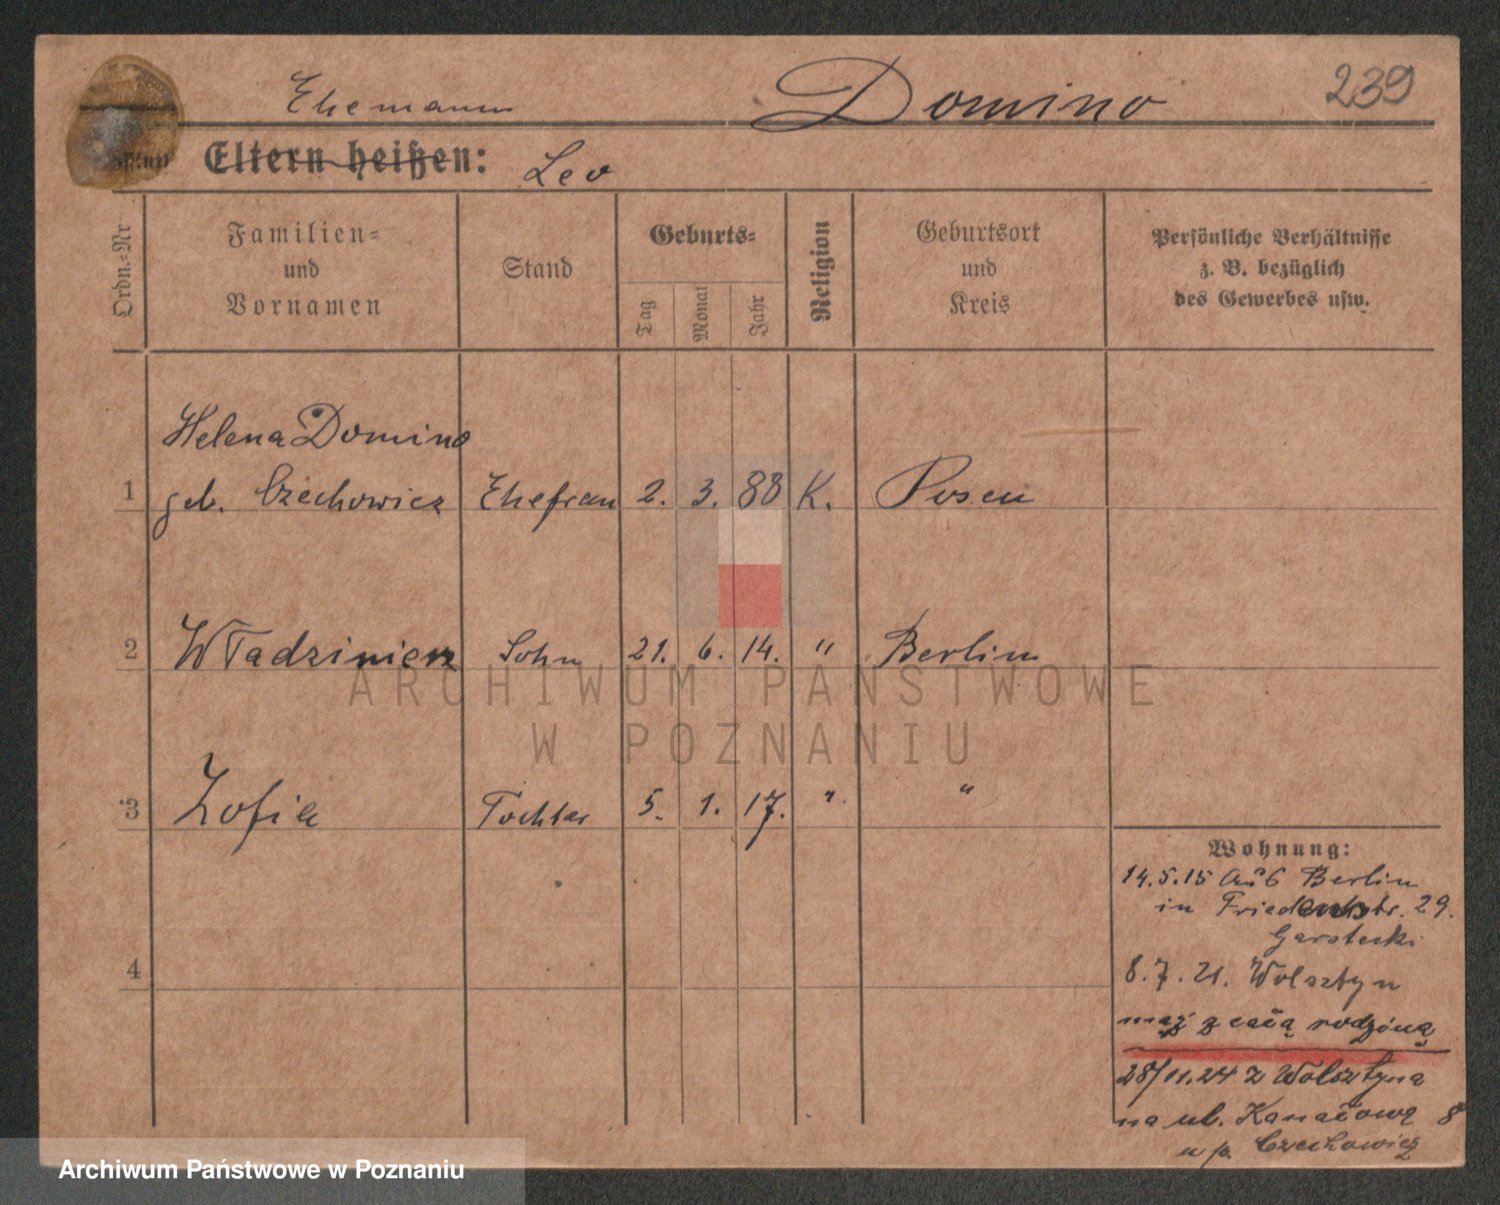 Ehemann Domino 239
Eltern heißen: Leo
Ordn.-Nr
Familien-
und
Vornamen
Stand
Geburts-
Tag
Monat
Jahr
Religion
Geburtsort
und
Kreis
Persönliche Verhältnisse
z. B. bezüglich
des Gewerbes usw.
Helena Domino
1 geb. Czechowicz Ehefrau 2. 3. 88 K. Posen
2 Władzimierz Sohn 21. 6. 14. " Berlin
3 Zofia Tochter 5. 1. 17. " "
4
Wohnung:
14.5.15 aus Berlin
in Friedenstr. 29.
Garstecki
8.7.21. Wolsztyn
mąż z całą rodziną
28/11.24 z Wolsztyna
na ul. Kanałową 8
u p. Czechowicz
ARCHIWUM PAŃSTWOWE
W POZNANIU
Archiwum Państwowe w Poznaniu